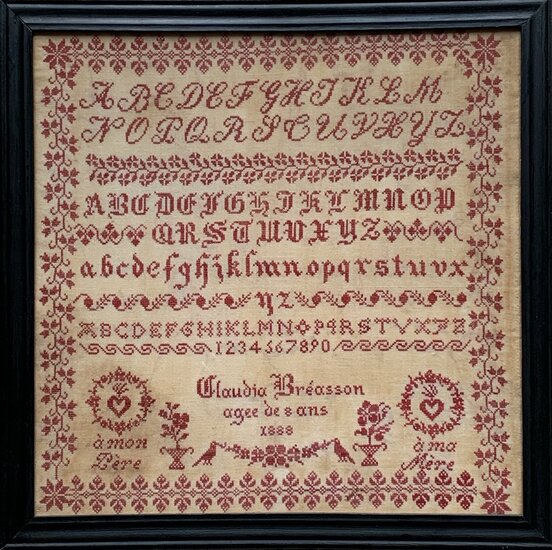 ABCDEFGHIJKLM
NOPQRSTUVXYZ
ABCDEFGHIKLMNOP
QRSTUVXYZ
abcdefghijklmnopqrstuvx
yz
ABCDEFGHIKLMNOPQRSTVXYZ
1234567890
Claudia Bréasson
agee de 8 ans
1888
à mon
Père
à ma
Mère